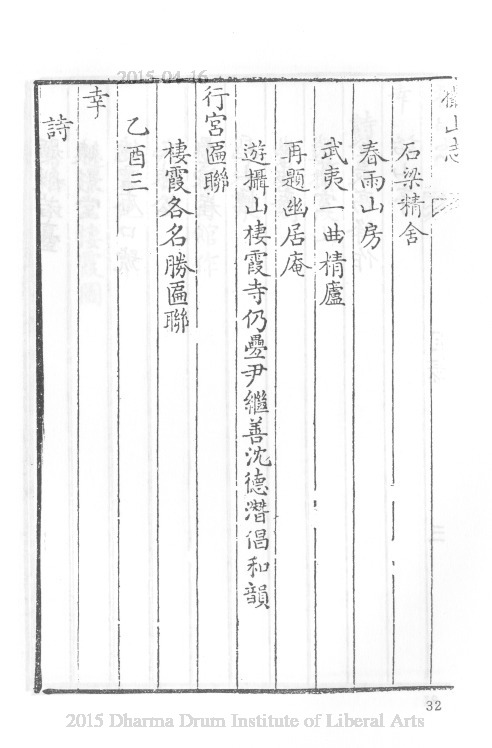 2015-04-16
攝山志
石梁精舍
春雨山房
武夷一曲精廬
再題幽居庵
遊攝山棲霞寺仍疊尹繼善沈德潛倡和韻
行宮匾聯
棲霞各名勝匾聯
乙酉三
幸
詩
32
2015 Dharma Drum Institute of Liberal Arts